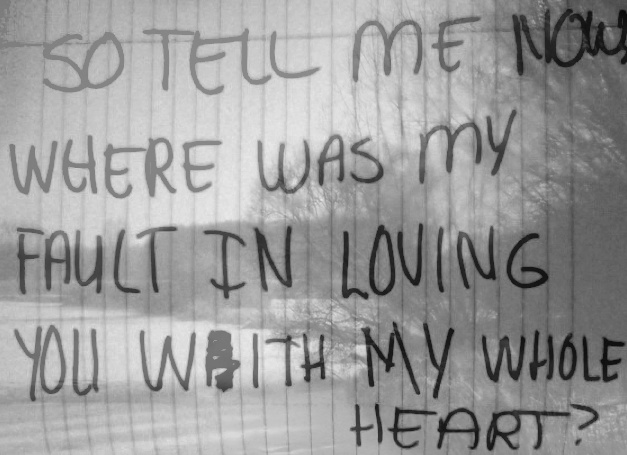 SO TELL ME NOW
WHERE WAS MY
FAULT IN LOVING
YOU WITH MY WHOLE
HEART?